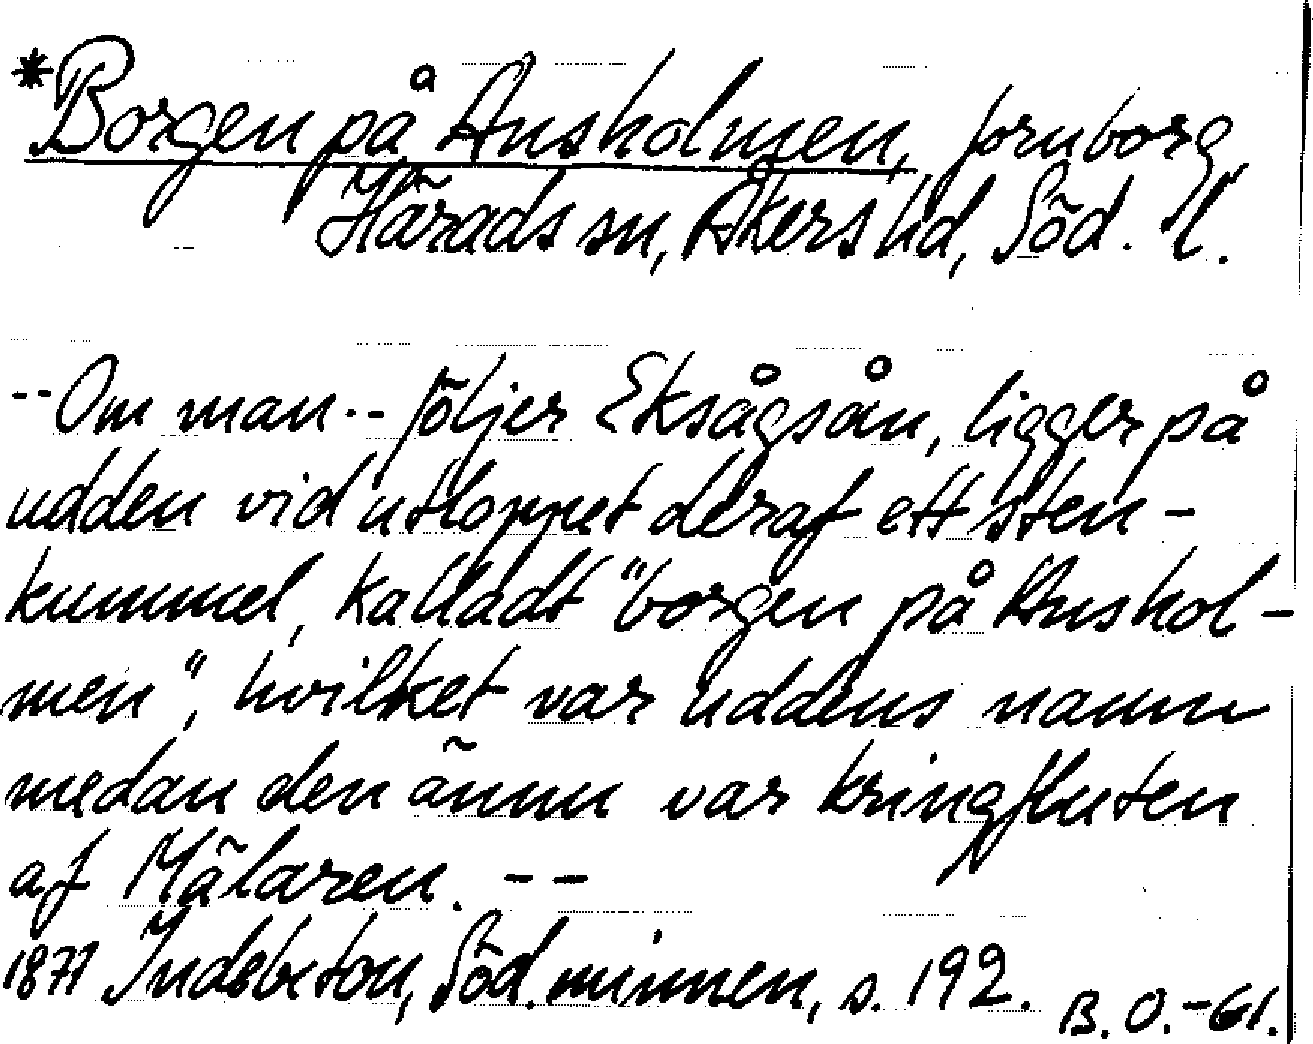 *Borgen på Ansholmen, fornborg,
Härads sn, Åkers hd, Söd. l.
-- Om man -- följer Eksågsån, ligger på
udden vid utloppet deraf ett sten-
kummel, kalladt "borgen på Anshol-
men", hvilket var uddens namn
medan den ännu var kringfluten
af Mälaren. --
1877 Indebetou, Söd. minnen, s. 192. B. O. -61.